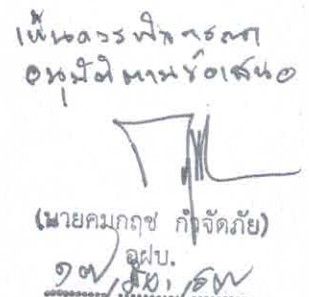 เห็นควรพิจารณา
อนุมัติตามข้อเสนอ
(นายคมกฤช กำจัดภัย)
อฝบ.